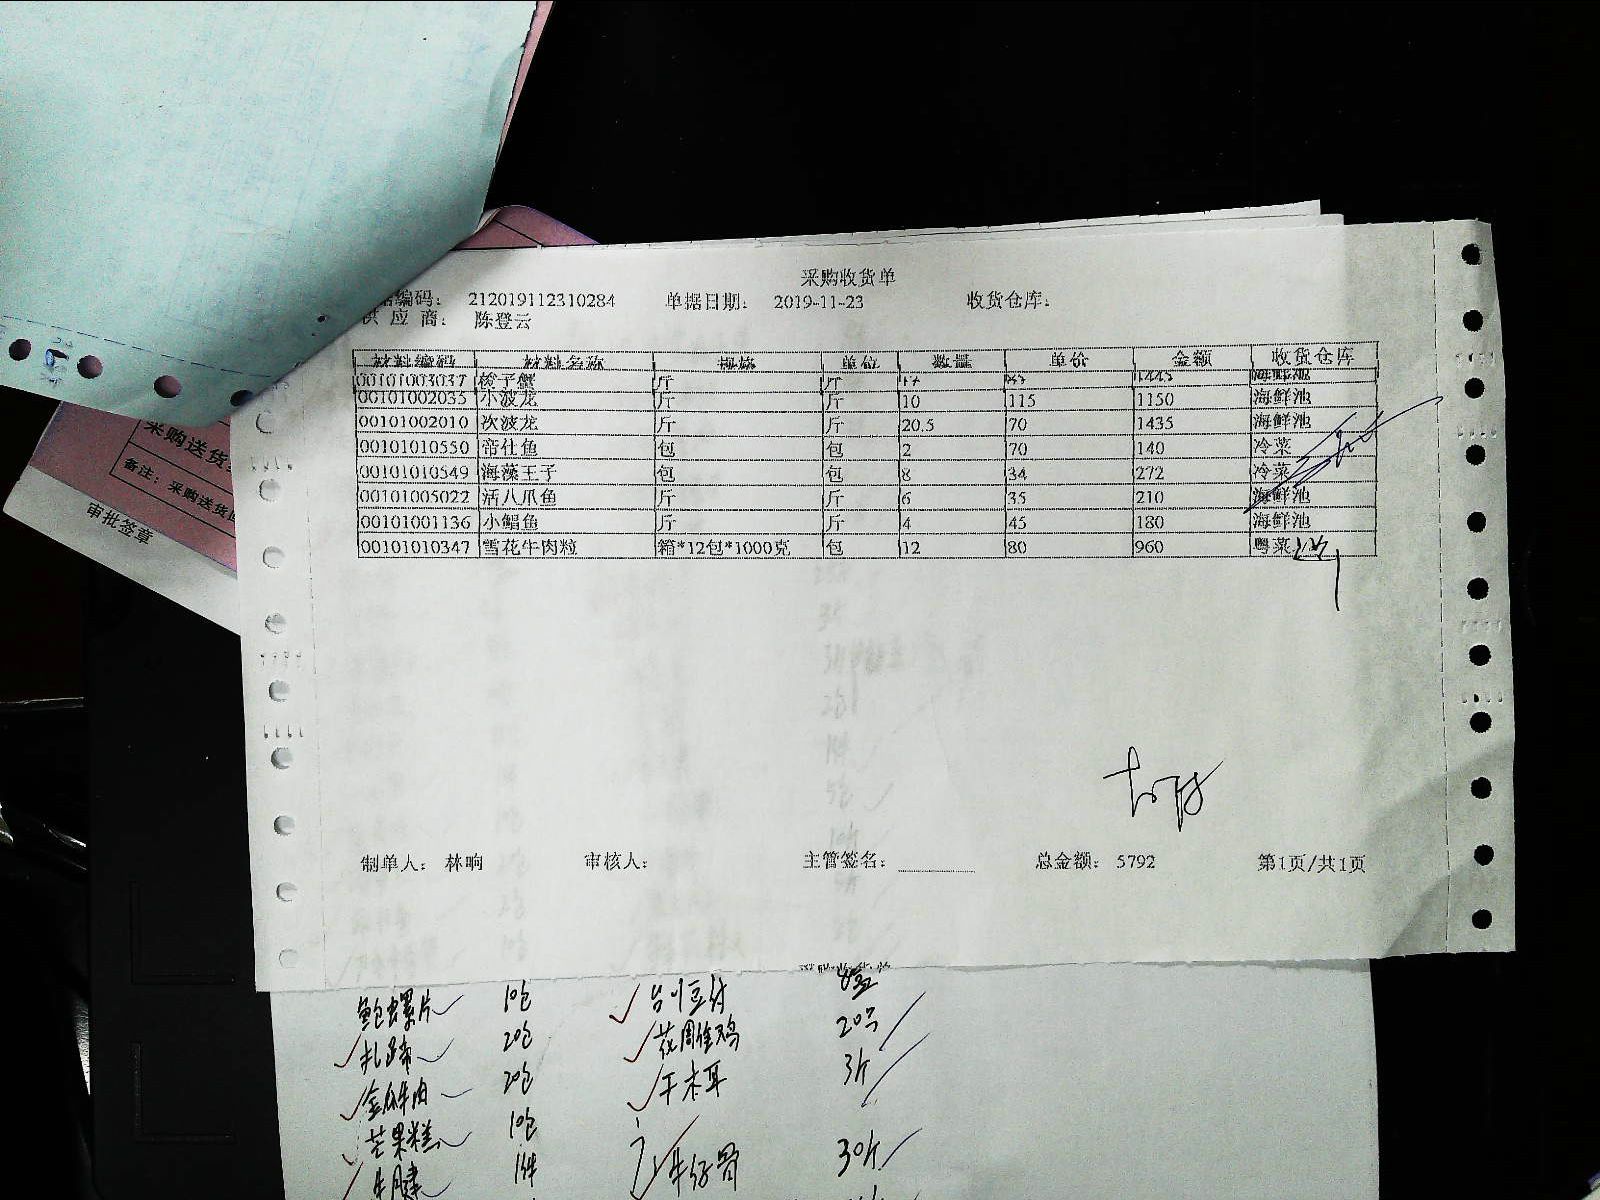 采购收货单
编码： 212019112310284 单据日期： 2019-11-23 收货仓库：
供 应 商： 陈登云
材料编码 材料名称 规格 单位 数量 单价 金额 收货仓库
00101003037 梭子蟹 斤 斤 17 85 1445 海鲜池
00101002035 小波龙 斤 斤 10 115 1150 海鲜池
00101002010 次波龙 斤 斤 20.5 70 1435 海鲜池
00101010550 帝仕鱼 包 包 2 70 140 冷菜
00101010549 海藻王子 包 包 8 34 272 冷菜
00101005022 活八爪鱼 斤 斤 6 35 210 海鲜池
00101001136 小鲳鱼 斤 斤 4 45 180 海鲜池
00101010347 雪花牛肉粒 箱*12包*1000克 包 12 80 960 粤菜
制单人： 林响 审核人： 主管签名： 总金额： 5792 第1页/共1页
采购送货
备注：采购送货
审批签章
采购收货单
鲍螺片 10包 台川豆付
扎蹄 20包 花雕鸡 20只
金瓜牛肉 20包 干木耳 3斤
芒果糕 10包
牛腱 1件 牛仔骨 30斤